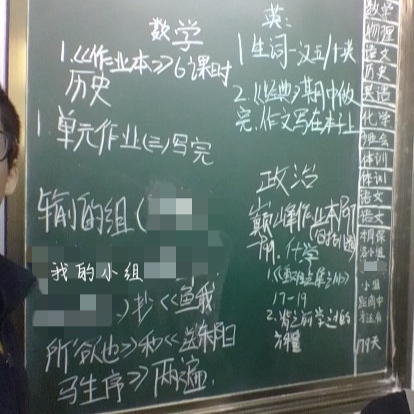 数学
1.《作业本》6课时
历史
1.单元作业(三)写完
输的组(
我的小组
)抄《鱼我
所欲也》和《送东阳
马生序》两遍
英:
1生词一汉五/十类
2.《经典》期中做
完.作文写在本上
政治
巅峰作业本所
化学
17-19
2.背之前学过的
方程
数学
物理
语文
历史
英语
化学
班会
体训
体训
语文
语文
小组
79天